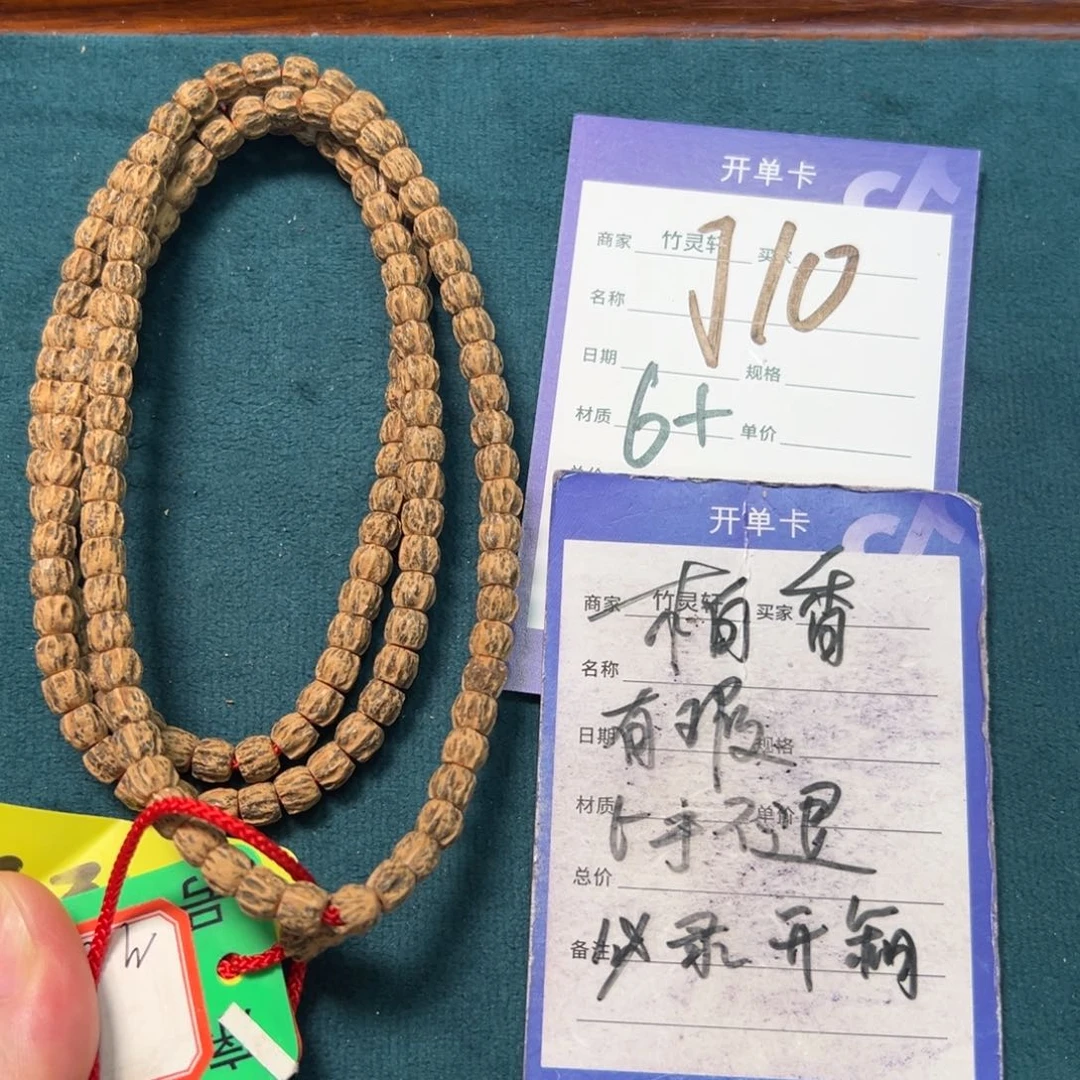 开单卡
商家 竹灵轩 买家
J10
名称
日期 规格
材质 6+ 单价
开单卡
商家 竹灵轩 买家
柏香
名称
有瑕
日期 规格
材质 单价
上手不退
总价
备注 必录开箱
品
W